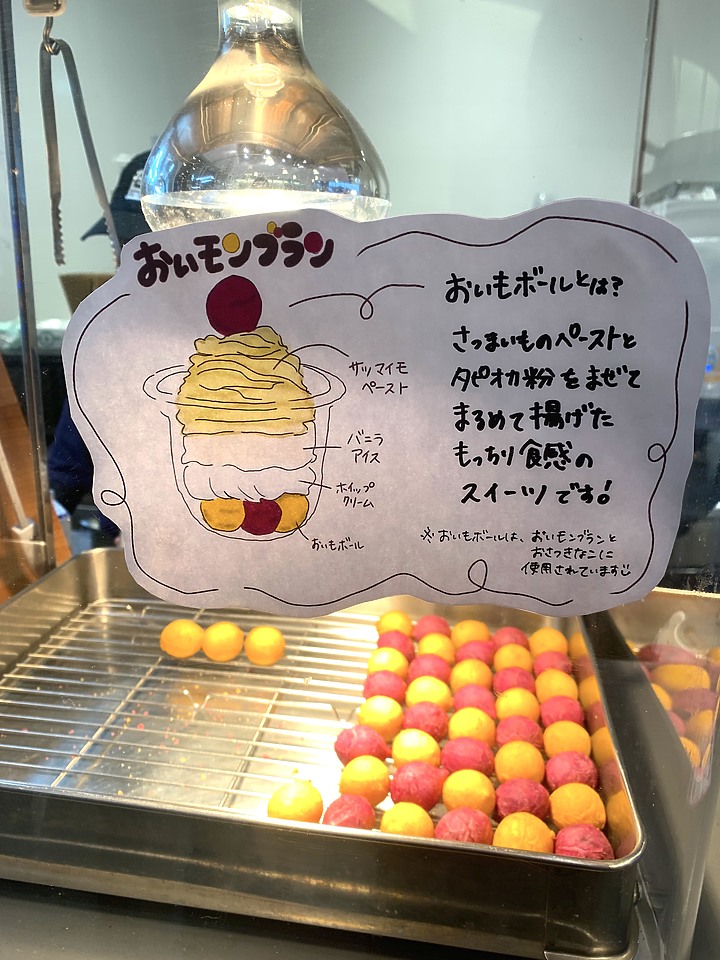 おいモンブラン
サツマイモ
ペースト
バニラ
アイス
ホイップ
クリーム
おいもボール
おいもボールとは?
さつまいものペーストと
タピオカ粉をまぜて
まるめて揚げた
もっちり食感の
スイーツです!
※おいもボールは、おいモンブランと
おさつきなこに
使用されています